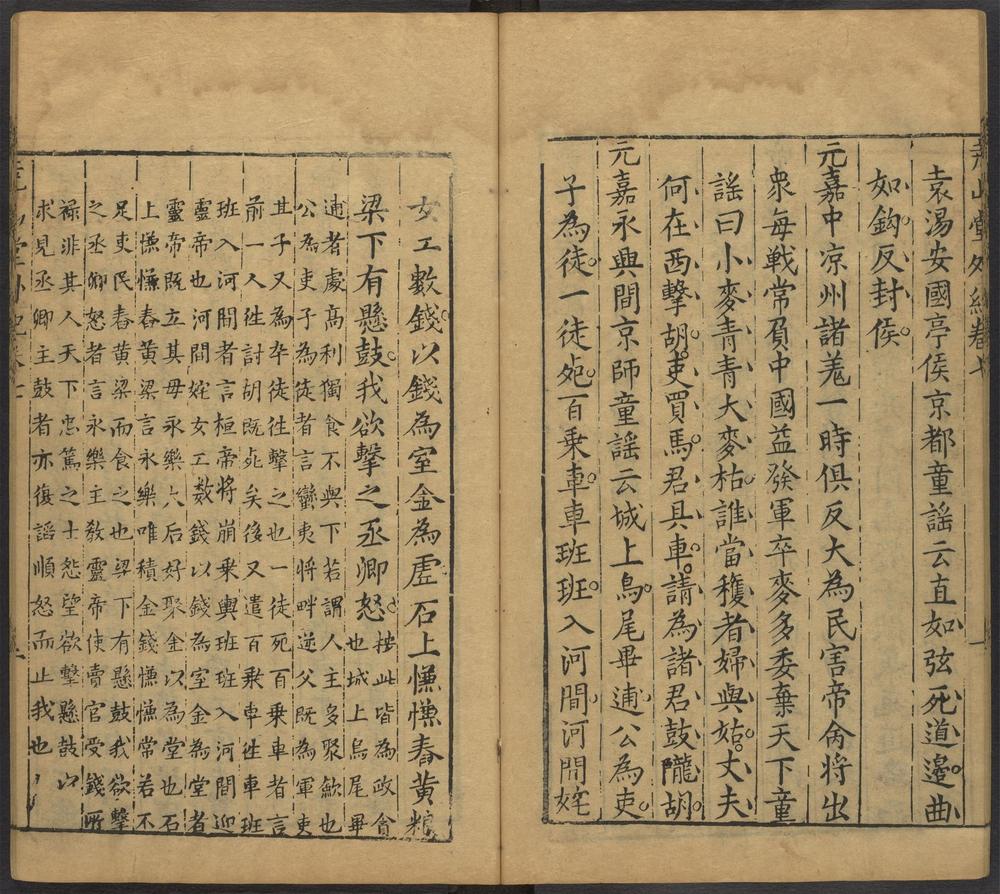 堯山堂外紀卷七
一
袁湯安國亭侯京都童謠云直如弦死道邊曲
如鈎反封侯
元嘉中凉州諸羗一時俱反大為民害帝命将出
衆每戰常負中國益發軍卒麥多委棄天下童
謠曰小麥青青大麥枯誰當穫者婦與姑丈夫
何在西擊胡吏買馬君具車請為諸君鼓隴胡
元嘉永興間京師童謠云城上烏尾畢逋公為吏
子為徒一徒死百乗車車班班入河間河間姹
女工數錢以錢為室金為虗石上慊慊舂黄粮
梁下有懸鼓我欲擊之丞卿怒按此皆為政貪
也城上烏尾畢
逋者處高利獨食不與下若謂人主多聚歛也
公為吏子為徒者言蠻夷将畔逆父既為軍吏
其子又為卒徒往擊之也一徒死百乗車者言
前一人徃討胡既死矣後又遣百乗車徃車班
班入河間者言桓帝将崩乗輿班班入河間迎
靈帝也河間姹女工數錢以錢為室金為堂者
靈帝既立其母永樂太后好聚金以為堂也石
上慊慊舂黄梁言永樂唯積金錢慊慊常若不
足吏民舂黄梁而食之也梁下有懸鼓我欲擊
之丞卿怒者言永樂主教靈帝使賣官受錢所
禄非其人天下忠篤之士怨望欲擊懸鼓以
求見丞卿主鼓者亦復謟順怒而止我也